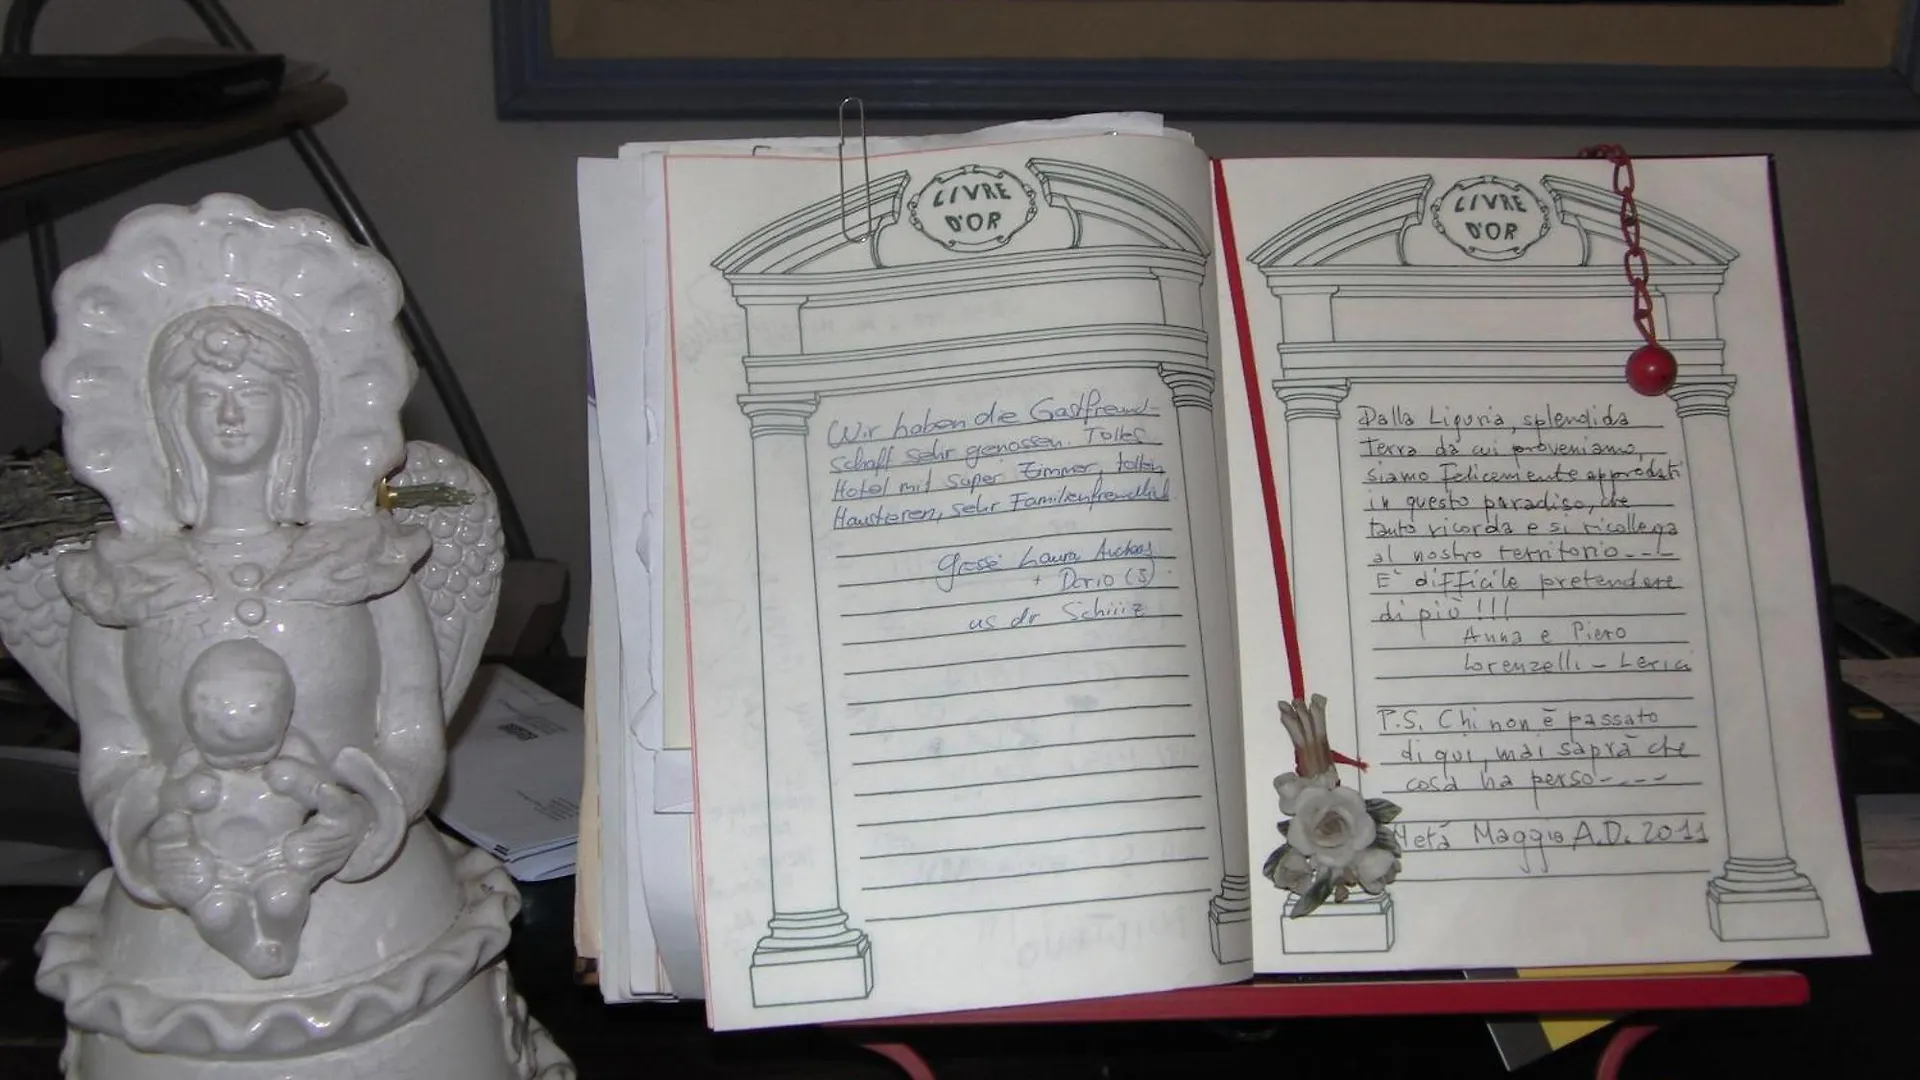 LIVRE
D'OR
Wir haben die Gastfreund-
schaft sehr genossen. Tolles
Hotel mit super Zimmer, tollen
Haustieren, sehr Familienfreundlich
Laura
+ Dario (3)
us dr Schiiiz
LIVRE
D'OR
Dalla Liguria, splendida
terra da cui proveniamo,
siamo felicemente approdati
in questo paradiso, che
tanto ricorda e si ricollega
al nostro territorio----
E' difficile pretendere
di più !!!
Anna e Piero
Lorenzelli - Lerici
P.S. Chi non è passato
di qui, mai saprà che
cosa ha perso----
Metà Maggio A.D. 2011